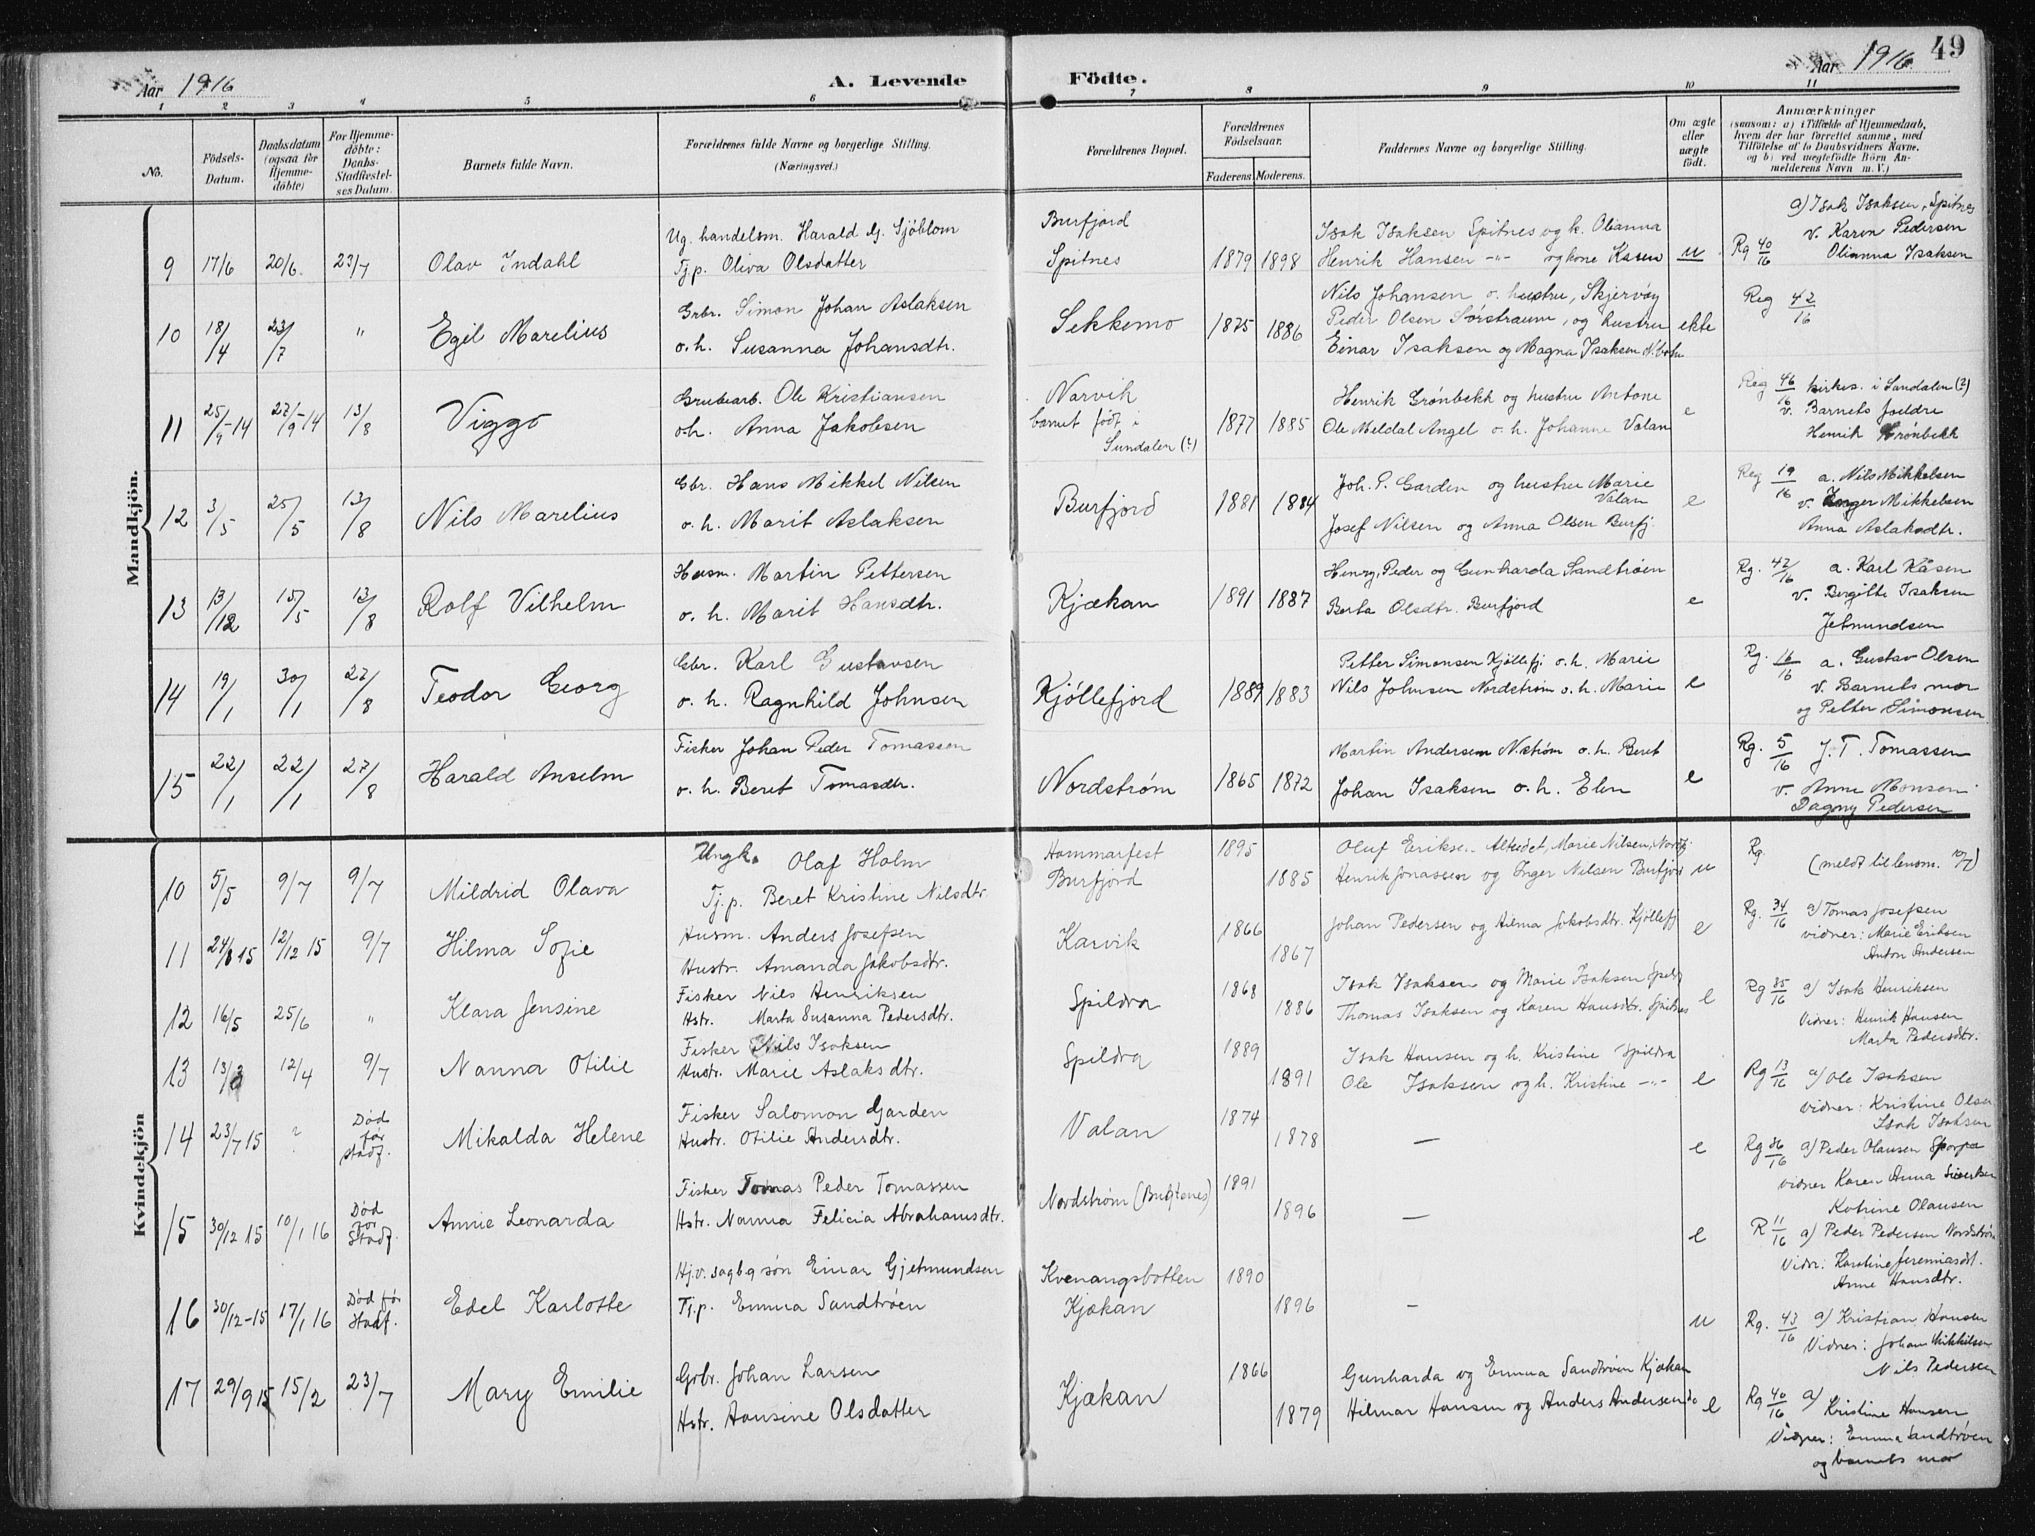 Aar 1916
A. Levende Födte.
Aar 1916
49
1 2 3 4 5 6 7 8 9 10 11
No.
Födsels-
Datum.
Daabsdatum
(ogsaa for
Hjemme-
döbte)
For Hjemme-
döbte:
Daabs-
Stadfæstel-
ses Datum.
Barnets fulde Navn.
Forældrenes fulde Navne og borgerlige Stilling.
(Næringsvei.)
Forældrenes Bopæl.
Forældrenes
Födselsaar.
Faderens. Moderens.
Faddernes Navne og borgerlige Stilling.
Om ægte
eller
uægte
födt.
Anmærkninger
(saasom: a) i Tilfælde af Hjemmedaab,
hvem der har forrettet samme, med
Tilföielse af to Daabsvidners Navne,
og b) ved uægtefödte Börn An-
melderens Navn m. V.)
Mandkjön.
9 17/6 20/6. 23/7 Olav Indahl
Ug. handelsm. Harald G. Sjöblom
Tj.p. Oliva Olsdatter
Burfjord
Spitnes
1879 1898
Isak Isaksen Spitnes og k. Olianna
Henrik Hansen -"- og kone Karen
u
Rg 40/16
a) Isak Isaksen, Spitnes
v. Karen Pedersen
Olianna Isaksen
10 18/4 23/7 " Egil Marelius
Grbr. Simon Johan Aslaksen
o.h. Susanna Johansdtr.
Sekkemo
1875 1886
Nils Johansen o. hustru, Skjervøy
Peder Olsen Sørstraum, og hustru
Einar Isaksen og Magna Isaksen
ekte
Reg 42/16
11 25/9-14 27/9-14 13/8 Viggo
Grubearb. Ole Kristiansen
o.h. Anna Jakobsen
Narvik
barnet født i
Sundalen (?)
1877 1885
Henrik Grønbekk og hustru Antone
Ole Meldal Angel o. h. Johanne Valan
e
Reg 46/16 kirkes. i Sundalen (?)
v. Barnets foreldre
Henrik Grønbekk
12 3/5 25/5 13/8 Nils Marelius
Gbr. Hans Mikkel Nilsen
o. h. Marit Aslaksen
Burfjord
1881 1884
Joh. P. Garden og hustru Marie
Valan
Josef Nilsen og Anna Olsen Burfj.
e
Reg 19/16 a. Nils Mikkelsen
v. Inger Mikkelsen
Anna Aslaksdtr.
13 13/12 15/5 13/8 Rolf Vilhelm
Husm. Martin Pettersen
o. h. Marit Hansdtr.
Kjækan
1891 1887
Henry, Peder og Gunharda Sandtrøen
Berta Olsdtr. Burfjord
e
Rg. 42/16 a. Karl Kåsen
v. Bergitte Isaksen
Jetmundsen
14 19/1 30/1 27/8 Teodor Georg
Gbr. Karl Gustavsen
o. h. Ragnhild Johnsen
Kjøllefjord
1889 1883
Petter Simonsen Kjøllefj. o.h. Marie
Nils Johnsen Nordstrøm o. h. Marie
e
Rg. 16/16 a. Gustav Olsen
v. Barnets mor
og Petter Simonsen
15 22/1 22/1 27/8 Harald Anselm
Fisker Johan Peder Tomassen
o. h. Beret Tomasdtr.
Nordstrøm
1865 1872
Martin Andersen N.strøm o. h. Beret
Johan Isaksen o. h. Elen
e
Rg. 5/16 J. T. Tomassen
v. Anne Monsen
Dagny Pedersen
Kvindekjön
10 5/5 9/7 9/7 Mildrid Olava
Ungk. Olaf Holm
Tj.p. Beret Kristine Nilsdtr.
Hammerfest
Burfjord
1895
1885
Oluf Eriksen Alteidet, Marie Nilsen,
Henrik Jonassen og Inger Nilsen Burfjord
u
Rg.
(meldt til lensm. 10/7)
11 24/8 15 12/12 15 9/7 Hilma Sofie
Husm. Anders Josefsen
Hustr. Amanda Jakobsdtr.
Karvik
1866
1867
Johan Pedersen og Hilma Jakobsdtr. Kjøllefj
e
Rg. 34/16 a) Tomas Josefsen
vidner: Marie Eriksen
Anton Andersen
12 16/5 25/6 " Klara Jensine
Fisker Nils Henriksen
Hstr. Marta Susanna Pedersdtr.
Spildra
1868
1886
Isak Isaksen og Marie Isaksen Spild.
Thomas Isaksen og Karen Hansdtr. Spitnes
e
Rg 35/16 a) Isak Henriksen
Vidner: Henrik Hansen
Marta Pedersdtr.
13 13/3 12/4 9/7 Nanna Otilie
Fisker Nils Isaksen
Hustr. Marie Aslaksdtr.
Spildra
1889
1891
Isak Hansen og h. Kristine Spildra
Ole Isaksen og h. Kristine -"-
e
Rg 13/16 a) Ole Isaksen
vidner: Kristine Olsen
Isak Isaksen
14 23/7 15 ? Død
før
stadf. Mikalda Helene
Fisker Salomon Garden
Hustr. Otilie Andersdtr.
Valan
1874
1878
—
e
Rg 36/16 a) Peder Olausen
vidner Karen Anna
Katrine Olausen
15 30/12 15 10/1 16 Død
før
Stadf. Annie Leonarda
Fisker Tomas Peder Tomassen
Hstr. Nanna Felicia Abrahamsdtr.
Nordstrøm
1891
1896
—
e
R 11/16 a) Peder Pedersen Nordstrøm
Vidr: Karoline Jeremiasdt.
Anne Hansdtr.
16 30/12-15 17/1 16 Død før
Stadf. Edel Karlotte
Hjv. sagbg søn Einar Gjetmundsen
Tj.p. Emma Sandtrøen
Kvenangsbotten
Kjækan
1890
1896
—
u
Rg. 43/16 a) Kristian Hansen
Vidner: Johan Mikkelsen
Nils Pedersen
17 29/9 15 15/2 23/7 Mary Emilie
Gbr. Johan Larsen
Hstr. Hansine Olsdatter
Kjækan
1866
1879
Gunharda og Emma Sandtrøen Kjækan
Hilmar Hansen og Anders Andersen do
e
Rg 40/16 a)
Kristine Hansen
Vidner: Emma Sandtrøen
og barnets mor